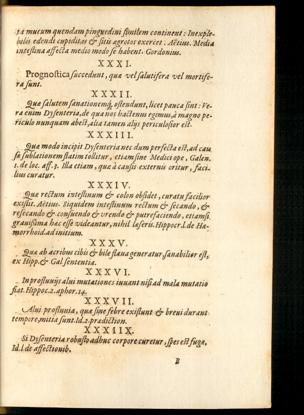 ra mucum quendam pinguedini similem continent: Inexple-
bilis edendi cupiditas & sitis ægrotos exercet. Aëtius. Media
intestina affecta medio modo se habent. Gordonius.
XXXI.
Prognostica succedunt, qua vel salutifera vel mortife-
ra sunt.
XXXII.
Qua salutem sanationemq; ostendunt, licet pauca sint: Ve-
ra enim Dysenteria, de qua nos hactenus egimus, à magno pe-
riculo nunquam abest, alia tamen alijs periculosior est.
XXXIII.
Qua modo incipit Dysenteria nec dum perfecta est, ad cau
sæ sublationem statim tollitur, etiam sine Medici ope, Galen.
1. de loc. aff. 3. Illa etiam, qua à causis externis oritur, faci-
lius curatur.
XXXIV.
Qua rectum intestinum & colon obsidet, curatu facilior
existit. Aëtius. Siquidem intestinum rectum & secando, &
resecando & consuendo & urendo & putrefaciendo, etiamsi
gravissima hæc esse videantur, nihil læseris. Hippocr. l. de Hæ-
morrhoid. ad initium.
XXXV.
Qua ab acribus cibis & bile flava generatur, sanabilior est,
ex Hipp. & Gal sententia.
XXXVI.
In profluvijs alvi mutationes iuvant nisi ad mala mutatio
fiat. Hippoc. 2. aphor. 14.
XXXVII.
Alvi profluvia, qua sine febre existunt & brevi durant
tempore, mitia sunt. Id. 2. prædiction.
XXXIIX.
Si Dysenteria robusto adhuc corpore curetur, spes est fugæ,
Id. l. de affectionib.
B